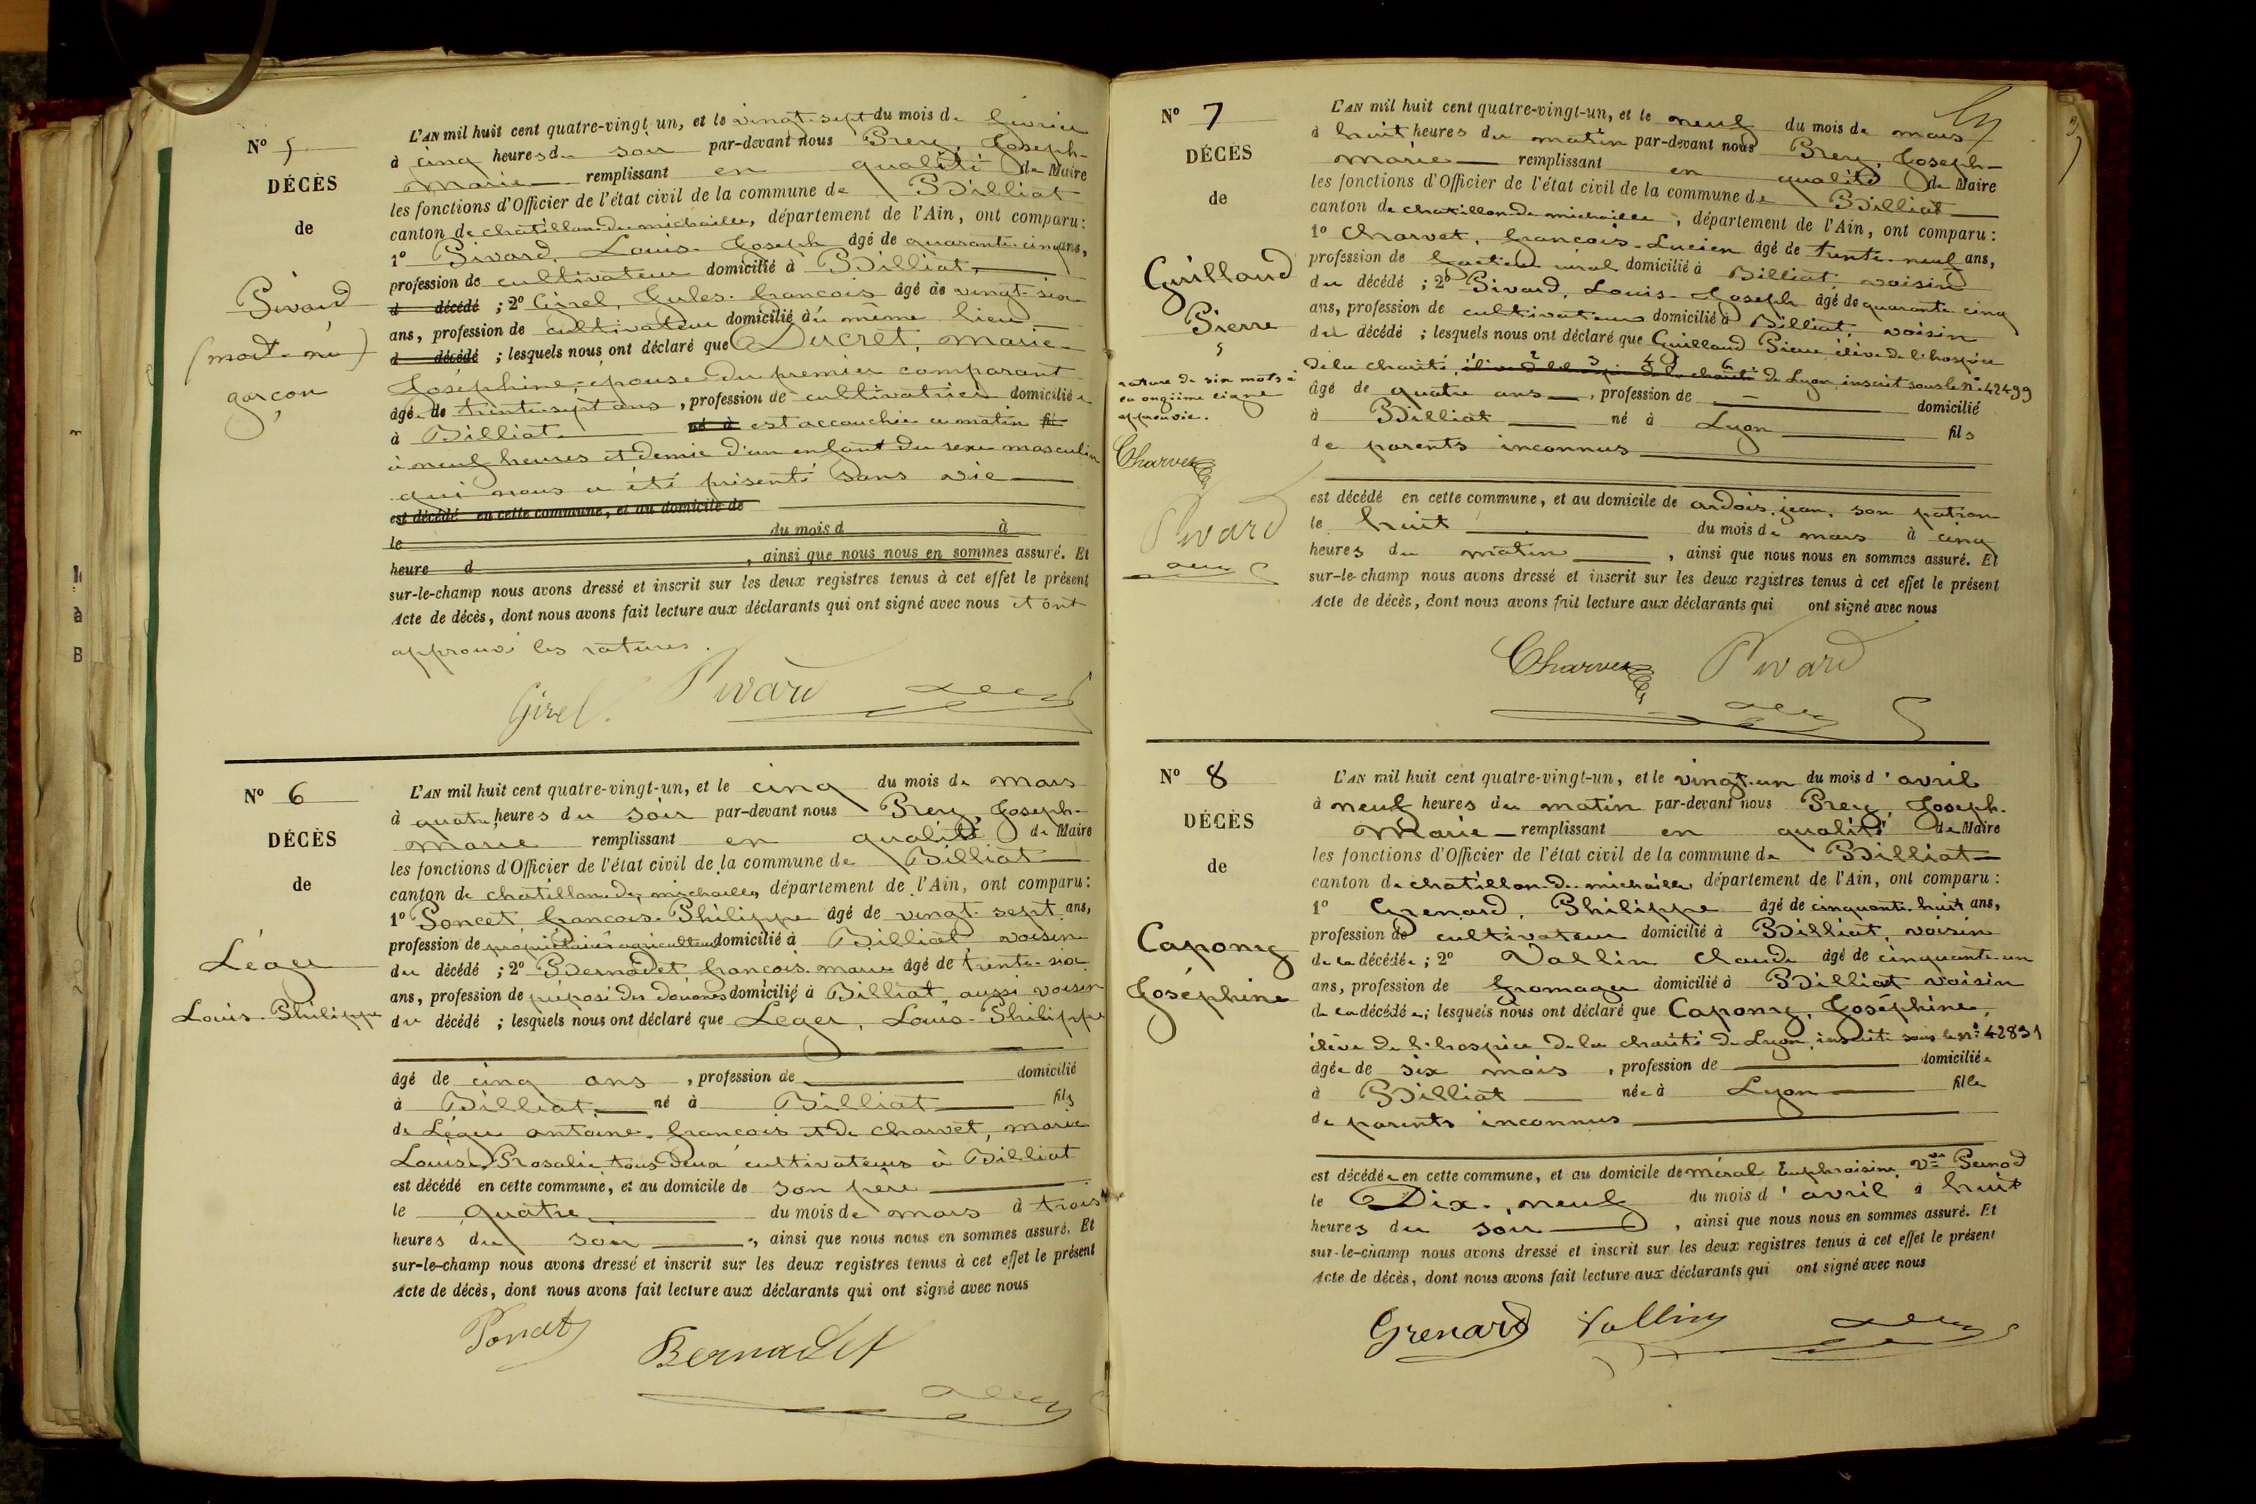 N° 5
DÉCÈS
de
Pivard
(mort-né)
garçon
L'AN mil huit cent quatre-vingt-un, et le vingt-sept du mois de février
à cinq heures du soir par-devant nous Prey, Joseph-
Marie remplissant en qualité de Maire
les fonctions d'Officier de l'état civil de la commune de Billiat
canton de chatillon-de-michaille, département de l'Ain, ont comparu:
1° Pivard, Louis-Joseph âgé de quarante-cinq ans,
profession de cultivateur domicilié à Billiat,
d décédé ; 2° Girel, Jules-françois âgé de vingt-six
ans, profession de cultivateur domicilié au même lieu
d décédé ; lesquels nous ont déclaré que Ducret, marie-
Joséphine, épouse du premier comparant
âgé de trente-sept ans, profession de cultivatrice domiciliée
à Billiat né à est accouchée ce matin fil
à neuf heures et demie d'un enfant du sexe masculin
qui nous a été présenté sans vie
est décédé en cette commune, et au domicile de
le du mois d à
heure d , ainsi que nous nous en sommes assuré. Et
sur-le-champ nous avons dressé et inscrit sur les deux registres tenus à cet effet le présent
Acte de décès, dont nous avons fait lecture aux déclarants qui ont signé avec nous et ont
approuvé les ratures.
Girel Pivard
N° 6
DÉCÈS
de
Léger
Louis-Philippe
L'AN mil huit cent quatre-vingt-un, et le cinq du mois de mars
à quatre heures du soir par-devant nous Prey, Joseph-
marie remplissant en qualité de Maire
les fonctions d'Officier de l'état civil de la commune de Billiat
canton de chatillon-de-michaille, département de l'Ain, ont comparu:
1° Poncet, françois-Philippe âgé de vingt-sept ans,
profession de propriétaire agriculteur domicilié à Billiat voisin
du décédé ; 2° Bernadet françois-marie âgé de trente-six
ans, profession de préposé des douanes domicilié à Billiat, aussi voisin
du décédé ; lesquels nous ont déclaré que Leger, Louis-Philippe
âgé de cinq ans, profession de domicilié
à Billiat né à Billiat fils
de Léger antoine-françois et de Charvet, marie
Louise Rosalie, tous deux cultivateurs à Billiat
est décédé en cette commune, et au domicile de son père
le quatre du mois de mars à trois
heures du soir , ainsi que nous nous en sommes assuré. Et
sur-le-champ nous avons dressé et inscrit sur les deux registres tenus à cet effet le présent
Acte de décès, dont nous avons fait lecture aux déclarants qui ont signé avec nous
Poncet Bernadet
N° 7
DÉCÈS
de
Guilland
Pierre
rature de six mots à
la onzième ligne
approuvée.
Charvet
Pivard
L'AN mil huit cent quatre-vingt-un, et le neuf du mois de mars
à huit heures du matin par-devant nous Prey, Joseph-
marie remplissant en qualité de Maire
les fonctions d'Officier de l'état civil de la commune de Billiat
canton de chatillon-de-michaille, département de l'Ain, ont comparu:
1° Charvet, françois-Lucien âgé de trente-neuf ans,
profession de facteur rural domicilié à Billiat, voisin
du décédé ; 2° Pivard, Louis-Joseph âgé de quarante cinq
ans, profession de cultivateur domicilié à Billiat, voisin
du décédé ; lesquels nous ont déclaré que Guilland Pierre, élève de l'hospice
de la charité, élève de l'hospice de la charité de Lyon, inscrit sous le n° 42499
âgé de quatre ans, profession de domicilié
à Billiat né à Lyon fils
de parents inconnus
est décédé en cette commune, et au domicile de ardois, jean, son patron
le huit du mois de mars à cinq
heures du matin , ainsi que nous nous en sommes assuré. Et
sur-le-champ nous avons dressé et inscrit sur les deux registres tenus à cet effet le présent
Acte de décès, dont nous avons fait lecture aux déclarants qui ont signé avec nous
Charvet Pivard
N° 8
DÉCÈS
de
Capony
Joséphine
L'AN mil huit cent quatre-vingt-un, et le vingt-un du mois d'avril
à neuf heures du matin par-devant nous Prey, Joseph-
Marie remplissant en qualité de Maire
les fonctions d'Officier de l'état civil de la commune de Billiat
canton de chatillon-de-michaille département de l'Ain, ont comparu:
1° Grenard, Philippe âgé de cinquante-huit ans,
profession de cultivateur domicilié à Billiat, voisin
de la décédée ; 2° Vallin Claude âgé de cinquante-un
ans, profession de fromager domicilié à Billiat voisin
de la décédée ; lesquels nous ont déclaré que Capony, Joséphine,
élève de l'hospice de la charité de Lyon, inscrite sous le n° 42831
âgée de six mois, profession de domiciliée
à Billiat née à Lyon fille
de parents inconnus
est décédée en cette commune, et au domicile de méral Euphroisine Vve Pernod
le Dix-neuf du mois d'avril à huit
heures du soir , ainsi que nous nous en sommes assuré. Et
sur-le-champ nous avons dressé et inscrit sur les deux registres tenus à cet effet le présent
Acte de décès, dont nous avons fait lecture aux déclarants qui ont signé avec nous
Grenard Vallin